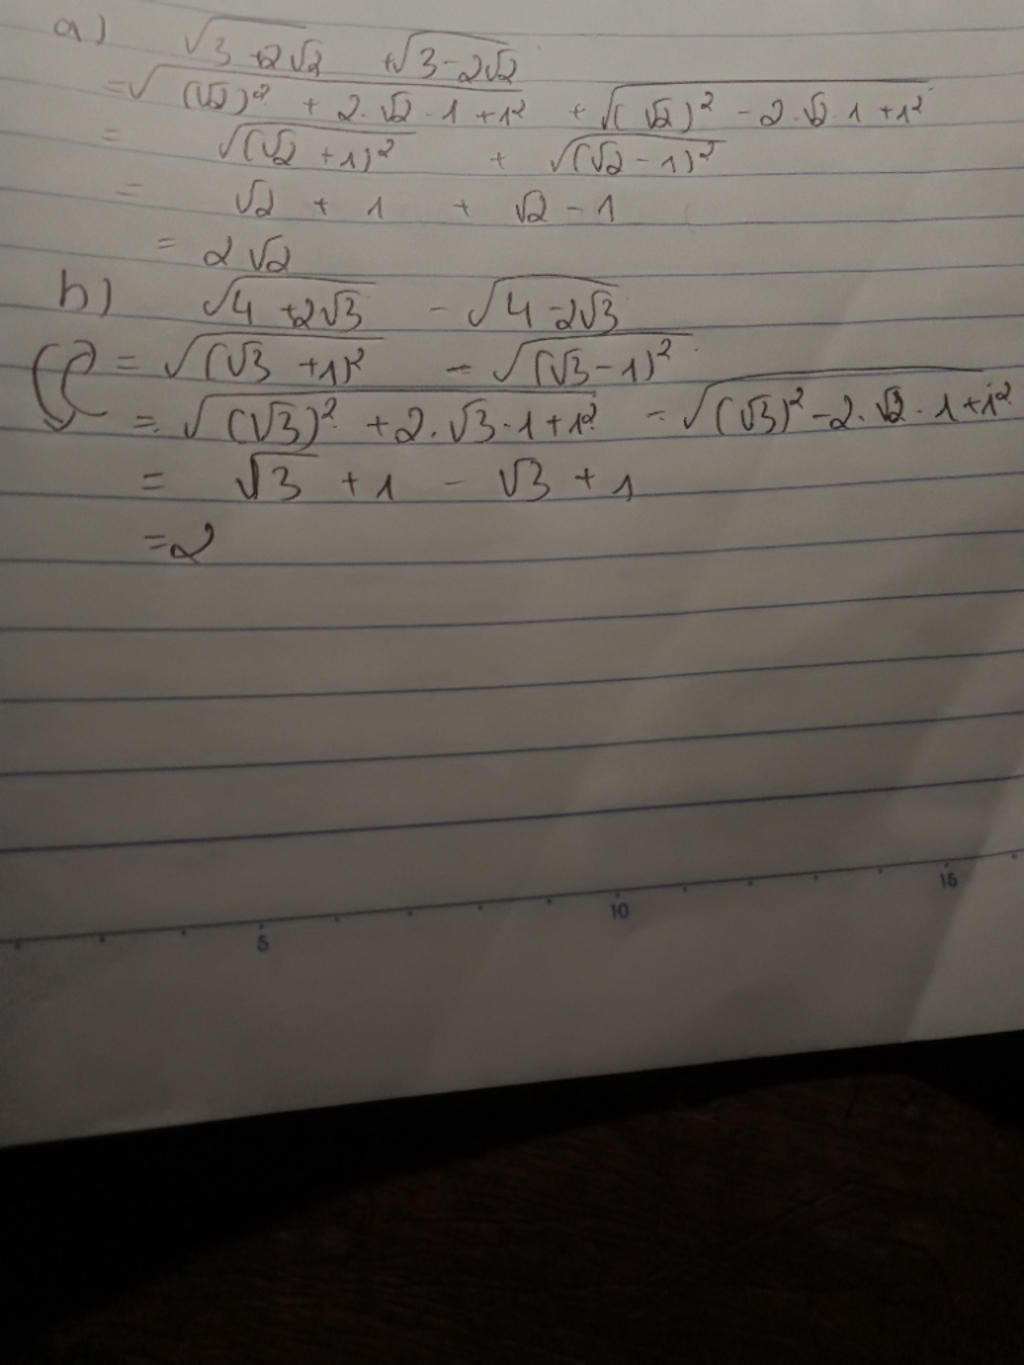 a) √3+2√2 +√3-2√2
=√(√2)² + 2.√2.1+1² + √(√2)² - 2.√2.1+1²
= √(√2+1)² + √(√2-1)²
= √2 + 1 + √2-1
= 2√2
b) √4+2√3 - √4-2√3
= √(√3+1)² - √(√3-1)²
= √(√3)²+2.√3.1+1² - √(√3)²-2.√3.1+1²
= √3 + 1 - √3 + 1
=2
5 10 15